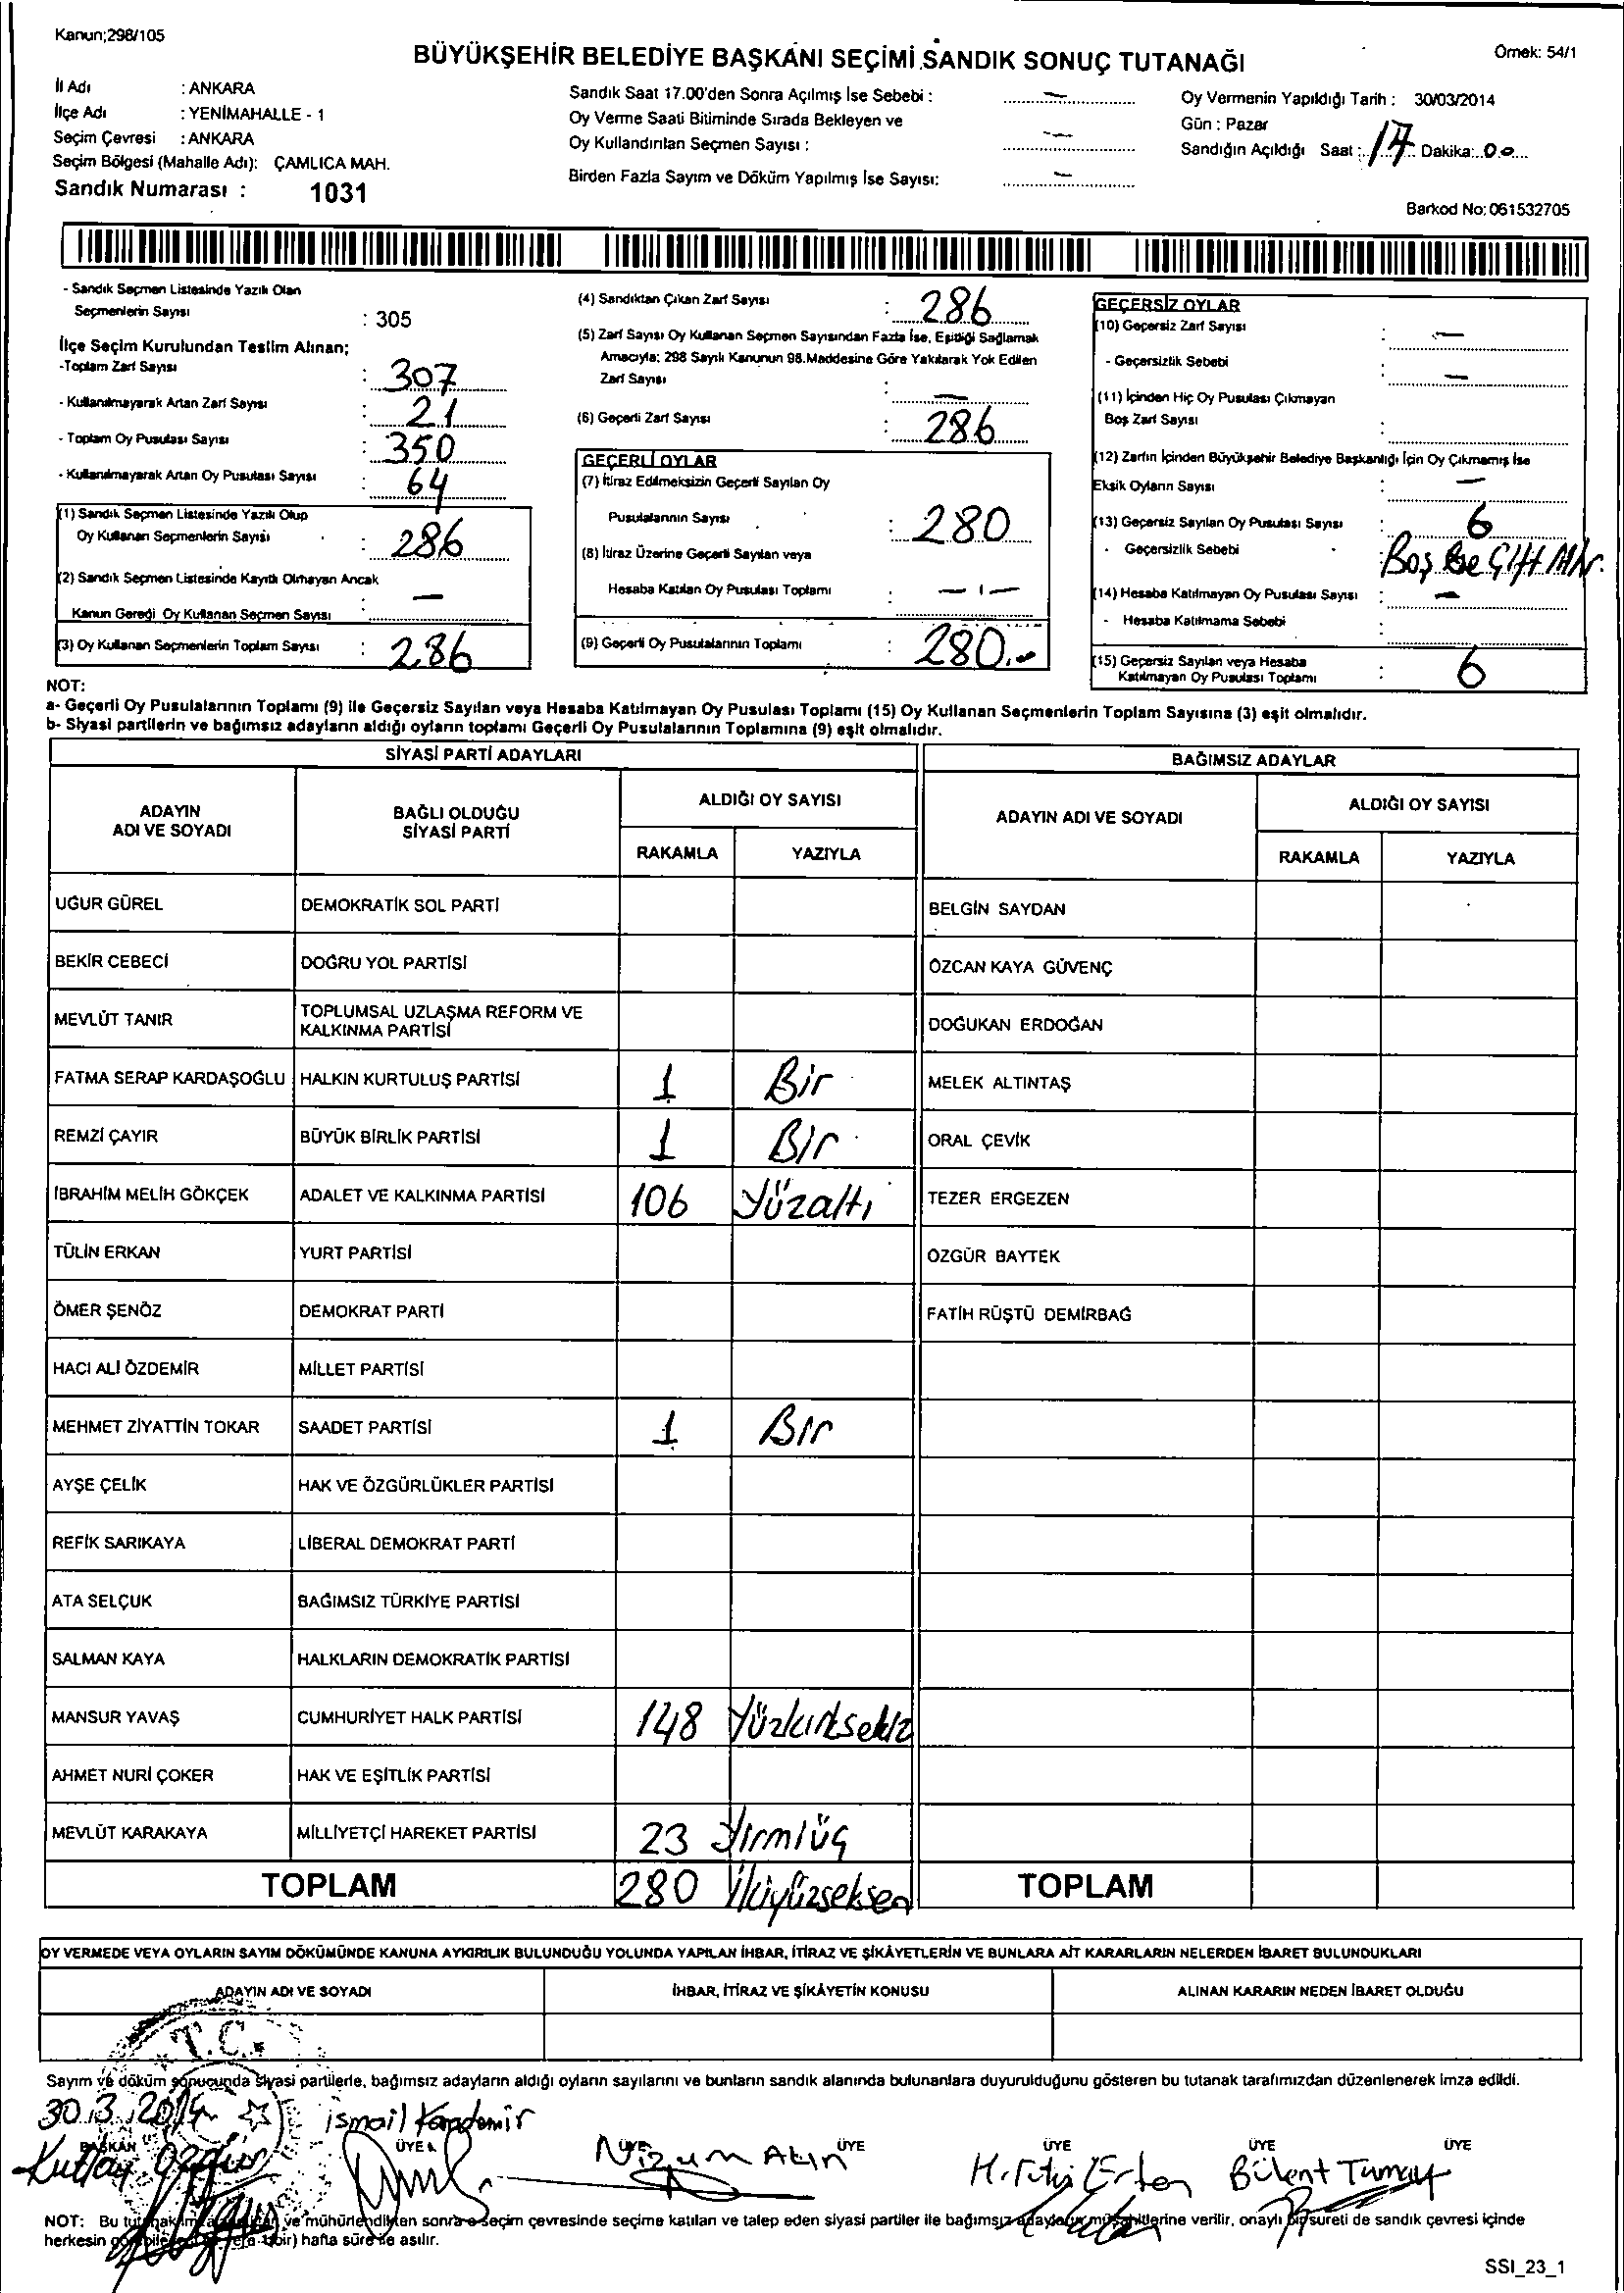 Kanun;298/105
BÜYÜKŞEHİR BELEDİYE BAŞKANI SEÇİMİ SANDIK SONUÇ TUTANAĞI
Örnek: 54/1
İl Adı : ANKARA
İlçe Adı : YENİMAHALLE - 1
Seçim Çevresi : ANKARA
Seçim Bölgesi (Mahalle Adı): ÇAMLICA MAH.
Sandık Numarası : 1031
Sandık Saat 17.00'den Sonra Açılmış İse Sebebi : —
Oy Verme Saati Bitiminde Sırada Bekleyen ve
Oy Kullandırılan Seçmen Sayısı : —
Birden Fazla Sayım ve Döküm Yapılmış İse Sayısı: —
Oy Vermenin Yapıldığı Tarih : 30/03/2014
Gün : Pazar
Sandığın Açıldığı Saat : 17 Dakika: 00
Barkod No: 061532705
- Sandık Seçmen Listesinde Yazılı Olan
Seçmenlerin Sayısı : 305
İlçe Seçim Kurulundan Teslim Alınan;
-Toplam Zarf Sayısı : 307
- Kullanılmayarak Artan Zarf Sayısı : 21
- Toplam Oy Pusulası Sayısı : 350
- Kullanılmayarak Artan Oy Pusulası Sayısı : 64
(1) Sandık Seçmen Listesinde Yazılı Olup
Oy Kullanan Seçmenlerin Sayısı : 286
(2) Sandık Seçmen Listesinde Kayıtlı Olmayan Ancak
Kanun Gereği Oy Kullanan Seçmen Sayısı : —
(3) Oy Kullanan Seçmenlerin Toplam Sayısı : 286
(4) Sandıktan Çıkan Zarf Sayısı : 286
(5) Zarf Sayısı Oy Kullanan Seçmen Sayısından Fazla İse, Eşitliği Sağlamak
Amacıyla; 298 Sayılı Kanunun 98.Maddesine Göre Yakılarak Yok Edilen
Zarf Sayısı : —
(6) Geçerli Zarf Sayısı : 286
GEÇERLİ OYLAR
(7) İtiraz Edilmeksizin Geçerli Sayılan Oy
Pusulalarının Sayısı : 280
(8) İtiraz Üzerine Geçerli Sayılan veya
Hesaba Katılan Oy Pusulası Toplamı : — ı —
(9) Geçerli Oy Pusulalarının Toplamı : 280.-
GEÇERSİZ OYLAR
(10) Geçersiz Zarf Sayısı : —
- Geçersizlik Sebebi : —
(11) İçinden Hiç Oy Pusulası Çıkmayan
Boş Zarf Sayısı :
(12) Zarfın İçinden Büyükşehir Belediye Başkanlığı İçin Oy Çıkmamış İse
Eksik Oyların Sayısı : —
(13) Geçersiz Sayılan Oy Pusulası Sayısı : 6
- Geçersizlik Sebebi : Boş Çift
(14) Hesaba Katılmayan Oy Pusulası Sayısı : —
- Hesaba Katılmama Sebebi :
(15) Geçersiz Sayılan veya Hesaba
Katılmayan Oy Pusulası Toplamı : 6
NOT:
a- Geçerli Oy Pusulalarının Toplamı (9) ile Geçersiz Sayılan veya Hesaba Katılmayan Oy Pusulası Toplamı (15) Oy Kullanan Seçmenlerin Toplam Sayısına (3) eşit olmalıdır.
b- Siyasi partilerin ve bağımsız adayların aldığı oyların toplamı Geçerli Oy Pusulalarının Toplamına (9) eşit olmalıdır.
SİYASİ PARTİ ADAYLARI
BAĞIMSIZ ADAYLAR
ADAYIN ADI VE SOYADI
BAĞLI OLDUĞU SİYASİ PARTİ
ALDIĞI OY SAYISI
RAKAMLA YAZIYLA
ADAYIN ADI VE SOYADI
ALDIĞI OY SAYISI
RAKAMLA YAZIYLA
UĞUR GÜREL DEMOKRATİK SOL PARTİ BELGİN SAYDAN
BEKİR CEBECİ DOĞRU YOL PARTİSİ ÖZCAN KAYA GÜVENÇ
MEVLÜT TANIR TOPLUMSAL UZLAŞMA REFORM VE KALKINMA PARTİSİ DOĞUKAN ERDOĞAN
FATMA SERAP KARDAŞOĞLU HALKIN KURTULUŞ PARTİSİ 1 Bir MELEK ALTINTAŞ
REMZİ ÇAYIR BÜYÜK BİRLİK PARTİSİ 1 Bir ORAL ÇEVİK
İBRAHİM MELİH GÖKÇEK ADALET VE KALKINMA PARTİSİ 106 Yüzaltı TEZER ERGEZEN
TÜLİN ERKAN YURT PARTİSİ ÖZGÜR BAYTEK
ÖMER ŞENÖZ DEMOKRAT PARTİ FATİH RÜŞTÜ DEMİRBAĞ
HACI ALİ ÖZDEMİR MİLLET PARTİSİ
MEHMET ZİYATTİN TOKAR SAADET PARTİSİ 1 Bir
AYŞE ÇELİK HAK VE ÖZGÜRLÜKLER PARTİSİ
REFİK SARIKAYA LİBERAL DEMOKRAT PARTİ
ATA SELÇUK BAĞIMSIZ TÜRKİYE PARTİSİ
SALMAN KAYA HALKLARIN DEMOKRATİK PARTİSİ
MANSUR YAVAŞ CUMHURİYET HALK PARTİSİ 148 Yüzkırksekiz
AHMET NURİ ÇOKER HAK VE EŞİTLİK PARTİSİ
MEVLÜT KARAKAYA MİLLİYETÇİ HAREKET PARTİSİ 23 Yirmiüç
TOPLAM 280 İkiyüzseksen TOPLAM
OY VERMEDE VEYA OYLARIN SAYIM DÖKÜMÜNDE KANUNA AYKIRILIK BULUNDUĞU YOLUNDA YAPILAN İHBAR, İTİRAZ VE ŞİKÂYETLERİN VE BUNLARA AİT KARARLARIN NELERDEN İBARET BULUNDUKLARI
ADAYIN ADI VE SOYADI İHBAR, İTİRAZ VE ŞİKÂYETİN KONUSU ALINAN KARARIN NEDEN İBARET OLDUĞU
T.C.
Sayım ve döküm sonucunda siyasi partilerle, bağımsız adayların aldığı oyların sayılarını ve bunların sandık alanında bulunanlara duyurulduğunu gösteren bu tutanak tarafımızdan düzenlenerek imza edildi.
30.3.2014 ismail Karademir
BAŞKAN ÜYE ÜYE ÜYE ÜYE ÜYE ÜYE
Kutlay Nizam Akın Bülent
NOT: Bu tutanak ve mühürlendikten sonra o seçim çevresinde seçime katılan ve talep eden siyasi partiler ile bağımsız adayların müşahitlerine verilir, onaylı bir sureti de sandık çevresi içinde
herkesin bir) hafta süre ile asılır.
SSI_23_1